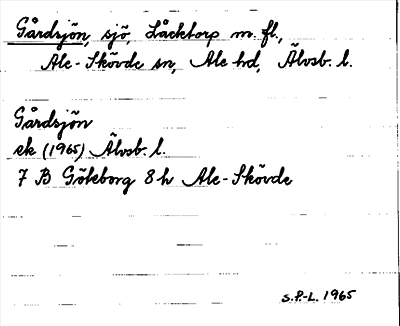 Gårdsjön, sjö, Låcktorp m. fl.,
Ale-Skövde sn, Ale hd, Älvsb. l.
Gårdsjön
ek (1965) Älvsb. l.
7 B Göteborg 8 h Ale-Skövde
S.P.-L. 1965